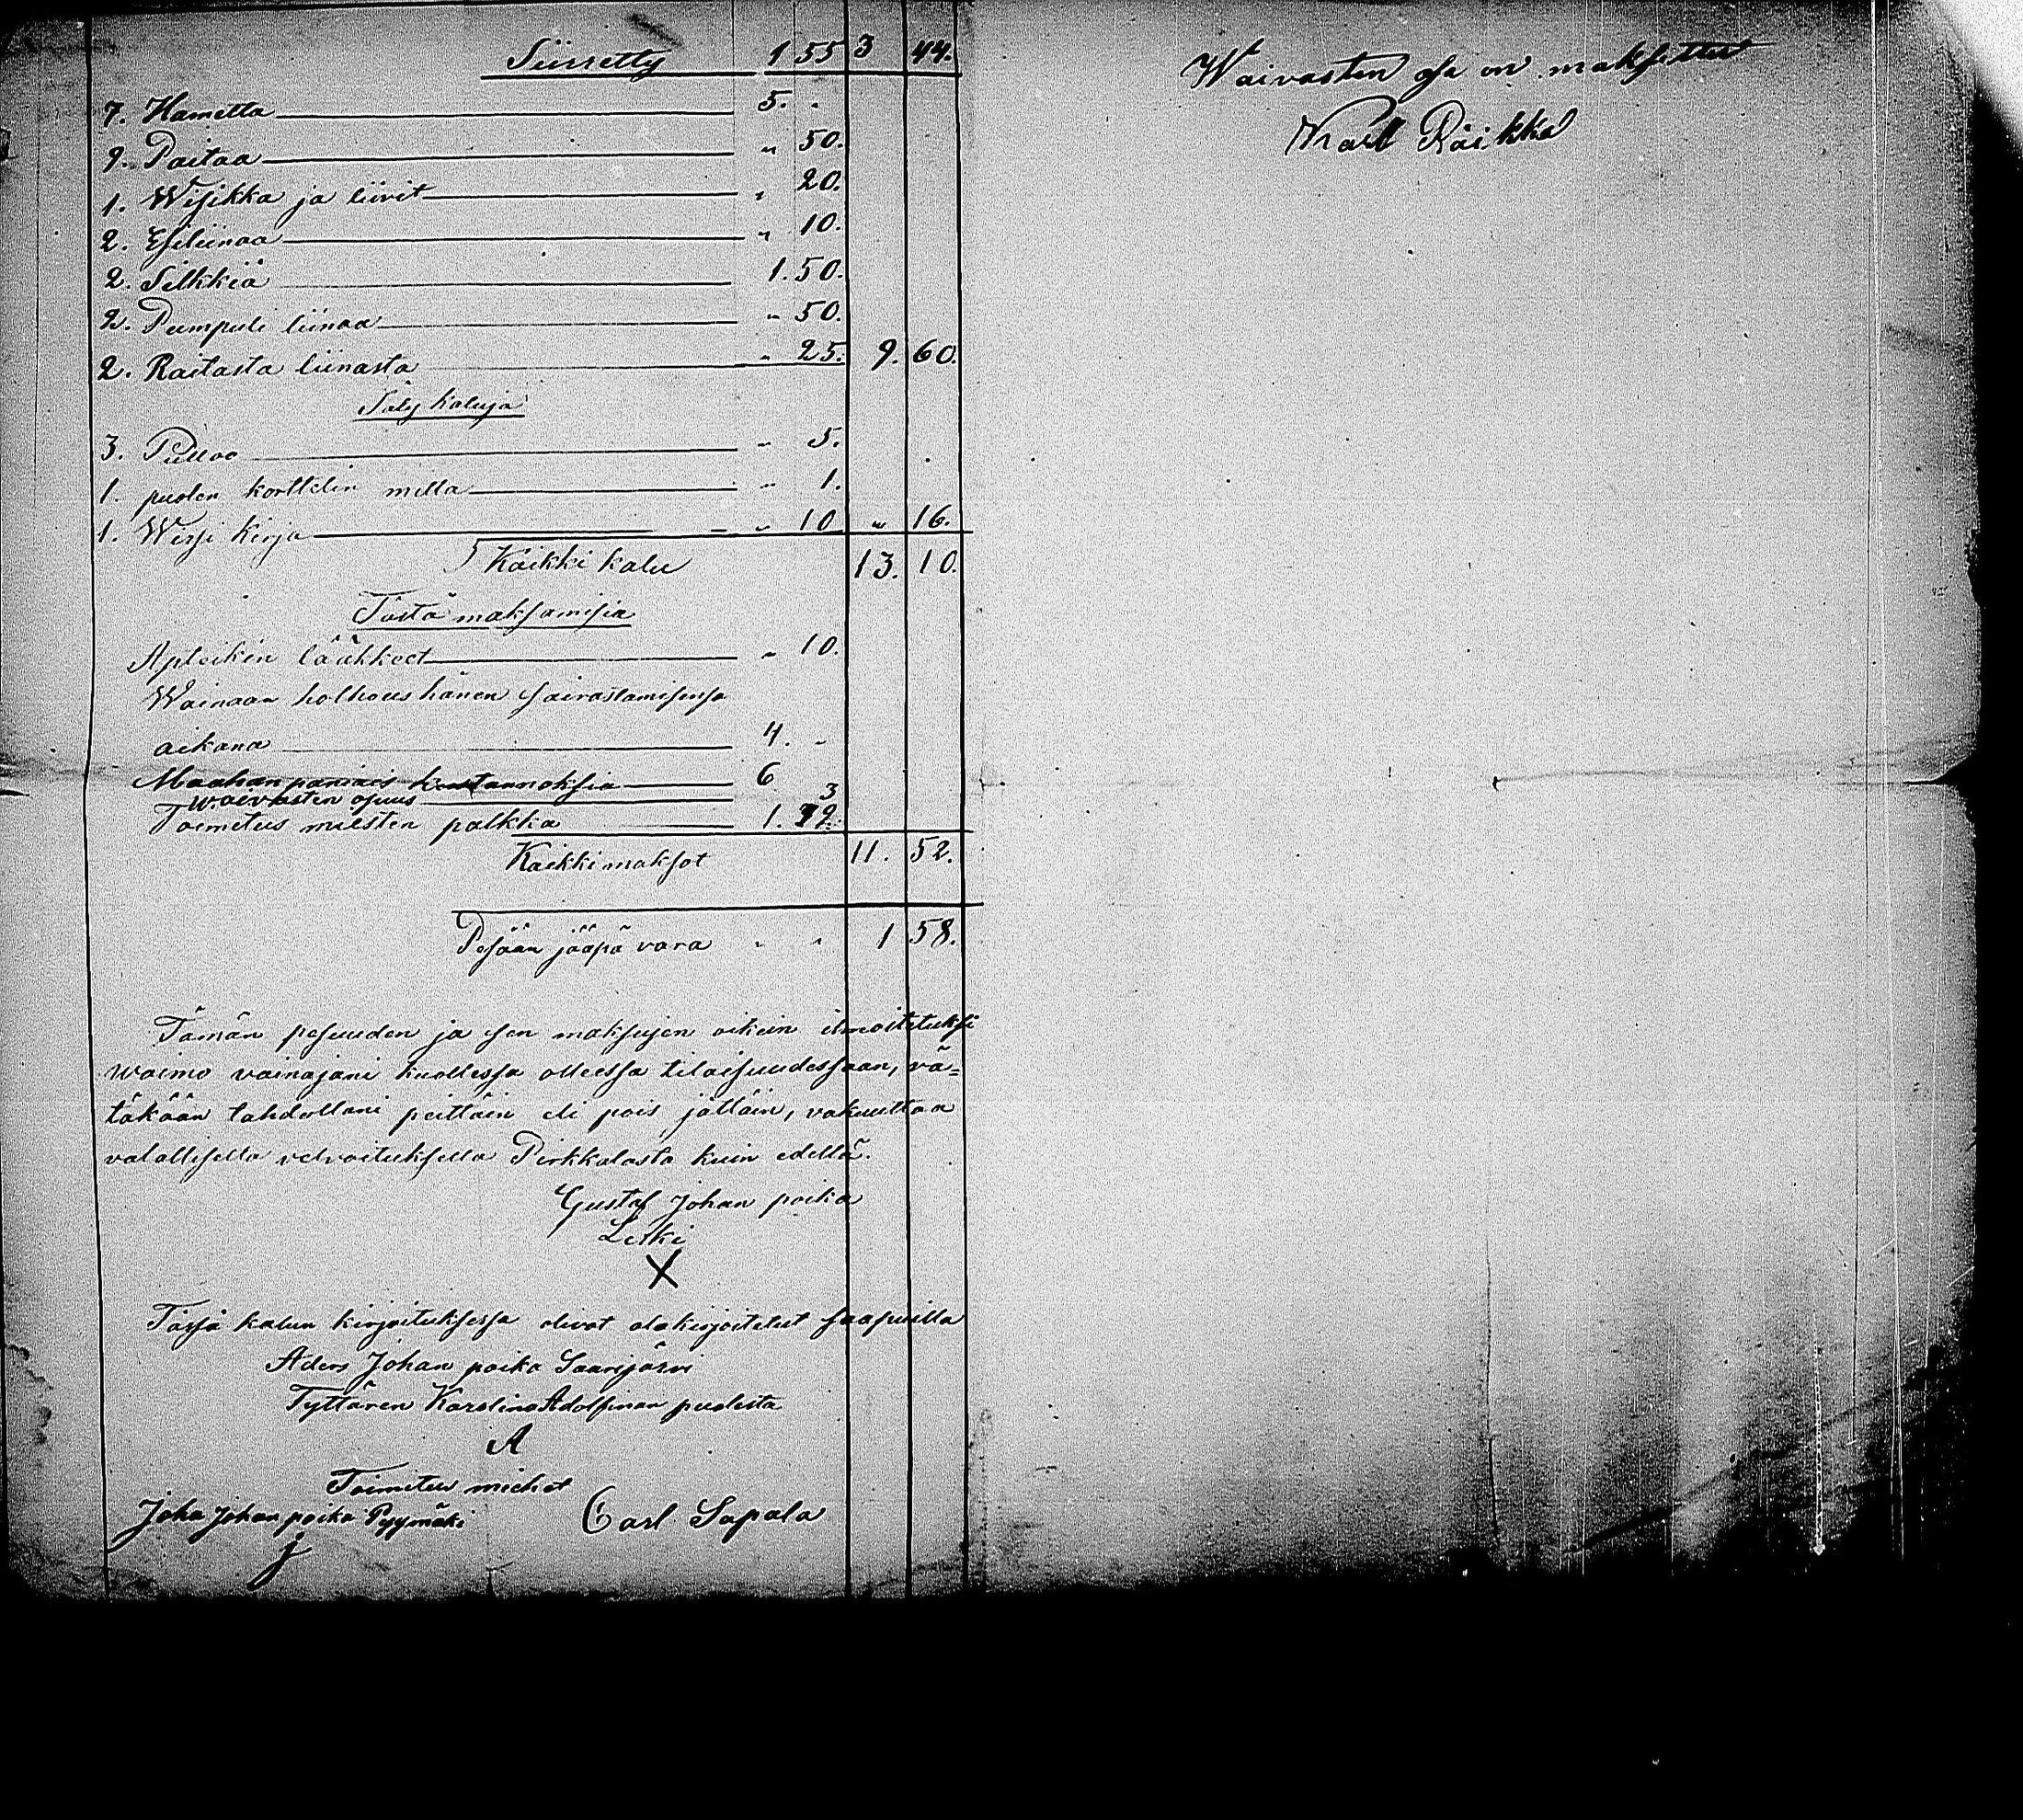 Siirretty 1 55 3 44.
7. Hametta 5. .
2. Paitaa " 50.
1. Wisikka ja liivit " 20.
2. Esiliinaa " 10.
2. Silkkiä 1. 50.
2. Pumpuli liinaa " 50.
2. Raitasta liinasta " 25. 9. 60.
Säly kaluja
3. Pulloo " 5.
1. puolen korttelin mitta " 1.
1. Wirsi kirja " 10 " 16.
Kaikki kalu 13. 10.
Tästä maksamisia
Apteikin lääkkeet " 10.
Wainaan holhous hänen sairastamisensa
aikana 4. "
Maahan paniais kustannoksia 6
waivasten osuus 3
Toimitus miesten palkka 1. 39.
Kaikki maksot 11. 52.
Pesään jääpä vara " " 1 58.
Tämän pesuuden ja sen maksujen oikein ilmoitetuksi
waimo vainajani kuollessa olleessa tilaisuudessaan, mi=
täkään tahdollani peittäin eli pois jättäin, vakuuttaa
valallisella velvoituksella Pirkkalasta kuin edellä.
Gustaf Johan poika
Leski
X
Tässä kalun kirjoituksessa olivat alakirjoitetut saapuilla
Aders Johan poika Saarijärvi
Tyttären Karolina Adolfinan puolesta
A
Toimitus miehet
Joha Johan poika Pyymäki Carl Sapala
J
Waivasten osa on maksettu
Karl Räikkä